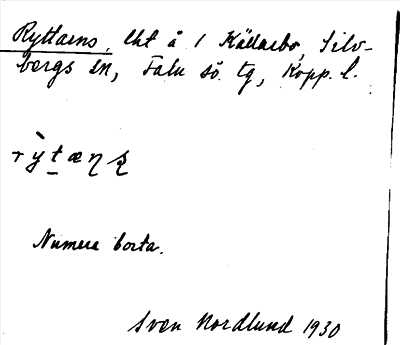 Ryttarns, lht å 1 Källarbo, Silv-
bergs sn, Falu sö. tg, Kopp. l.
Numera borta.
Sven Nordlund 1930